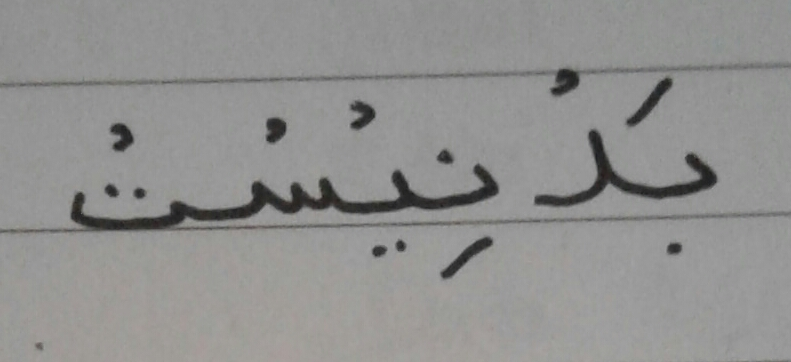 بَدْ نِیْسْتْ